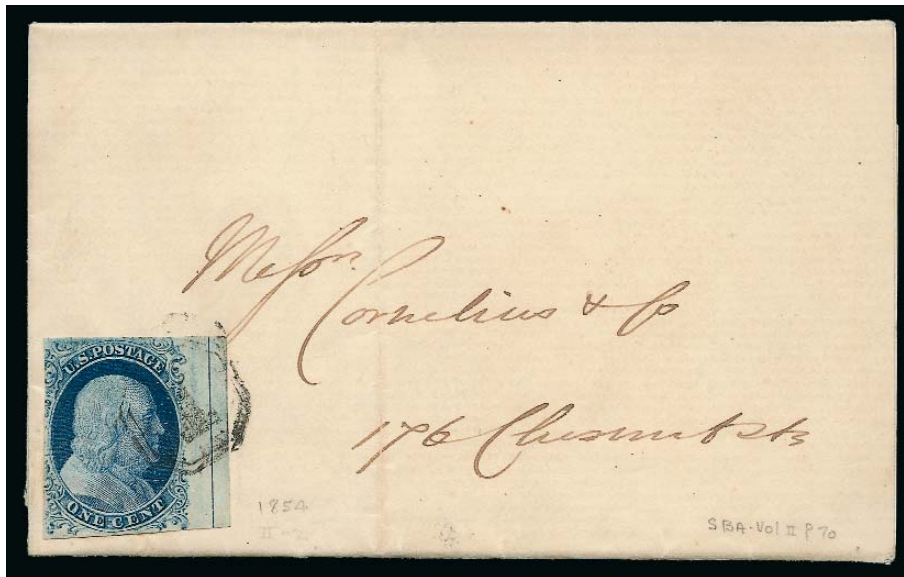 Messrs.
Cornelius & Co
176 Chesnut st
U.S. POSTAGE
ONE CENT
1854
II-2
SBA-Vol II P 70